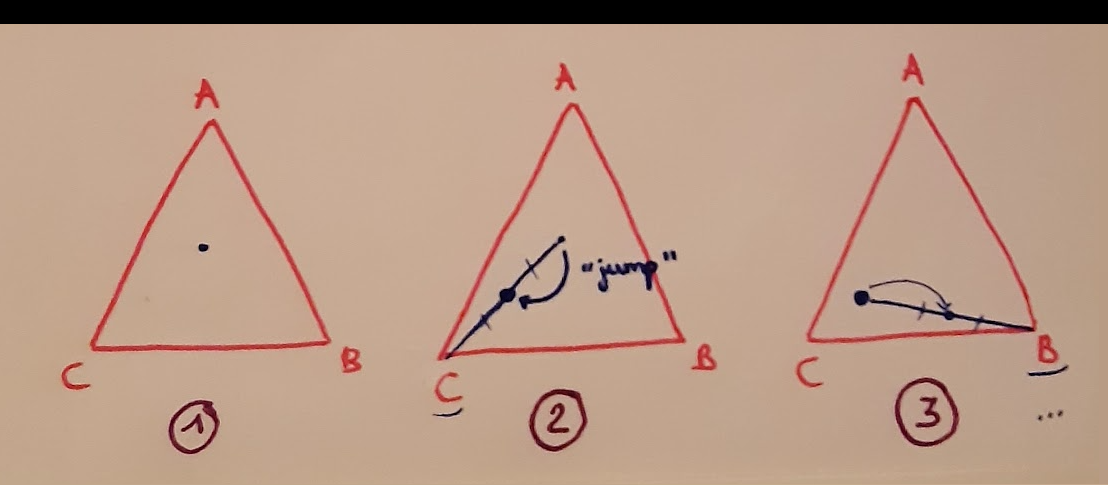 A
C
B
1
A
"jump"
C
B
2
A
C
B
3
...